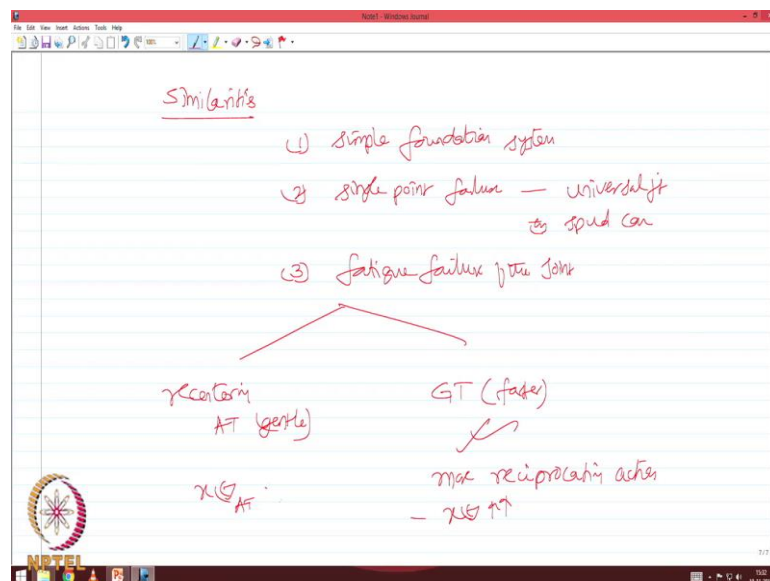 Note1 - Windows Journal
File Edit View Insert Actions Tools Help
Similarities
(1) simple foundation system
(2) single point failure — universal jt
spud can
(3) fatigue failure of the joint
recentering GT (faster)
AT (gentle)
max reciprocating action
AT
NPTEL
7/7
15:32